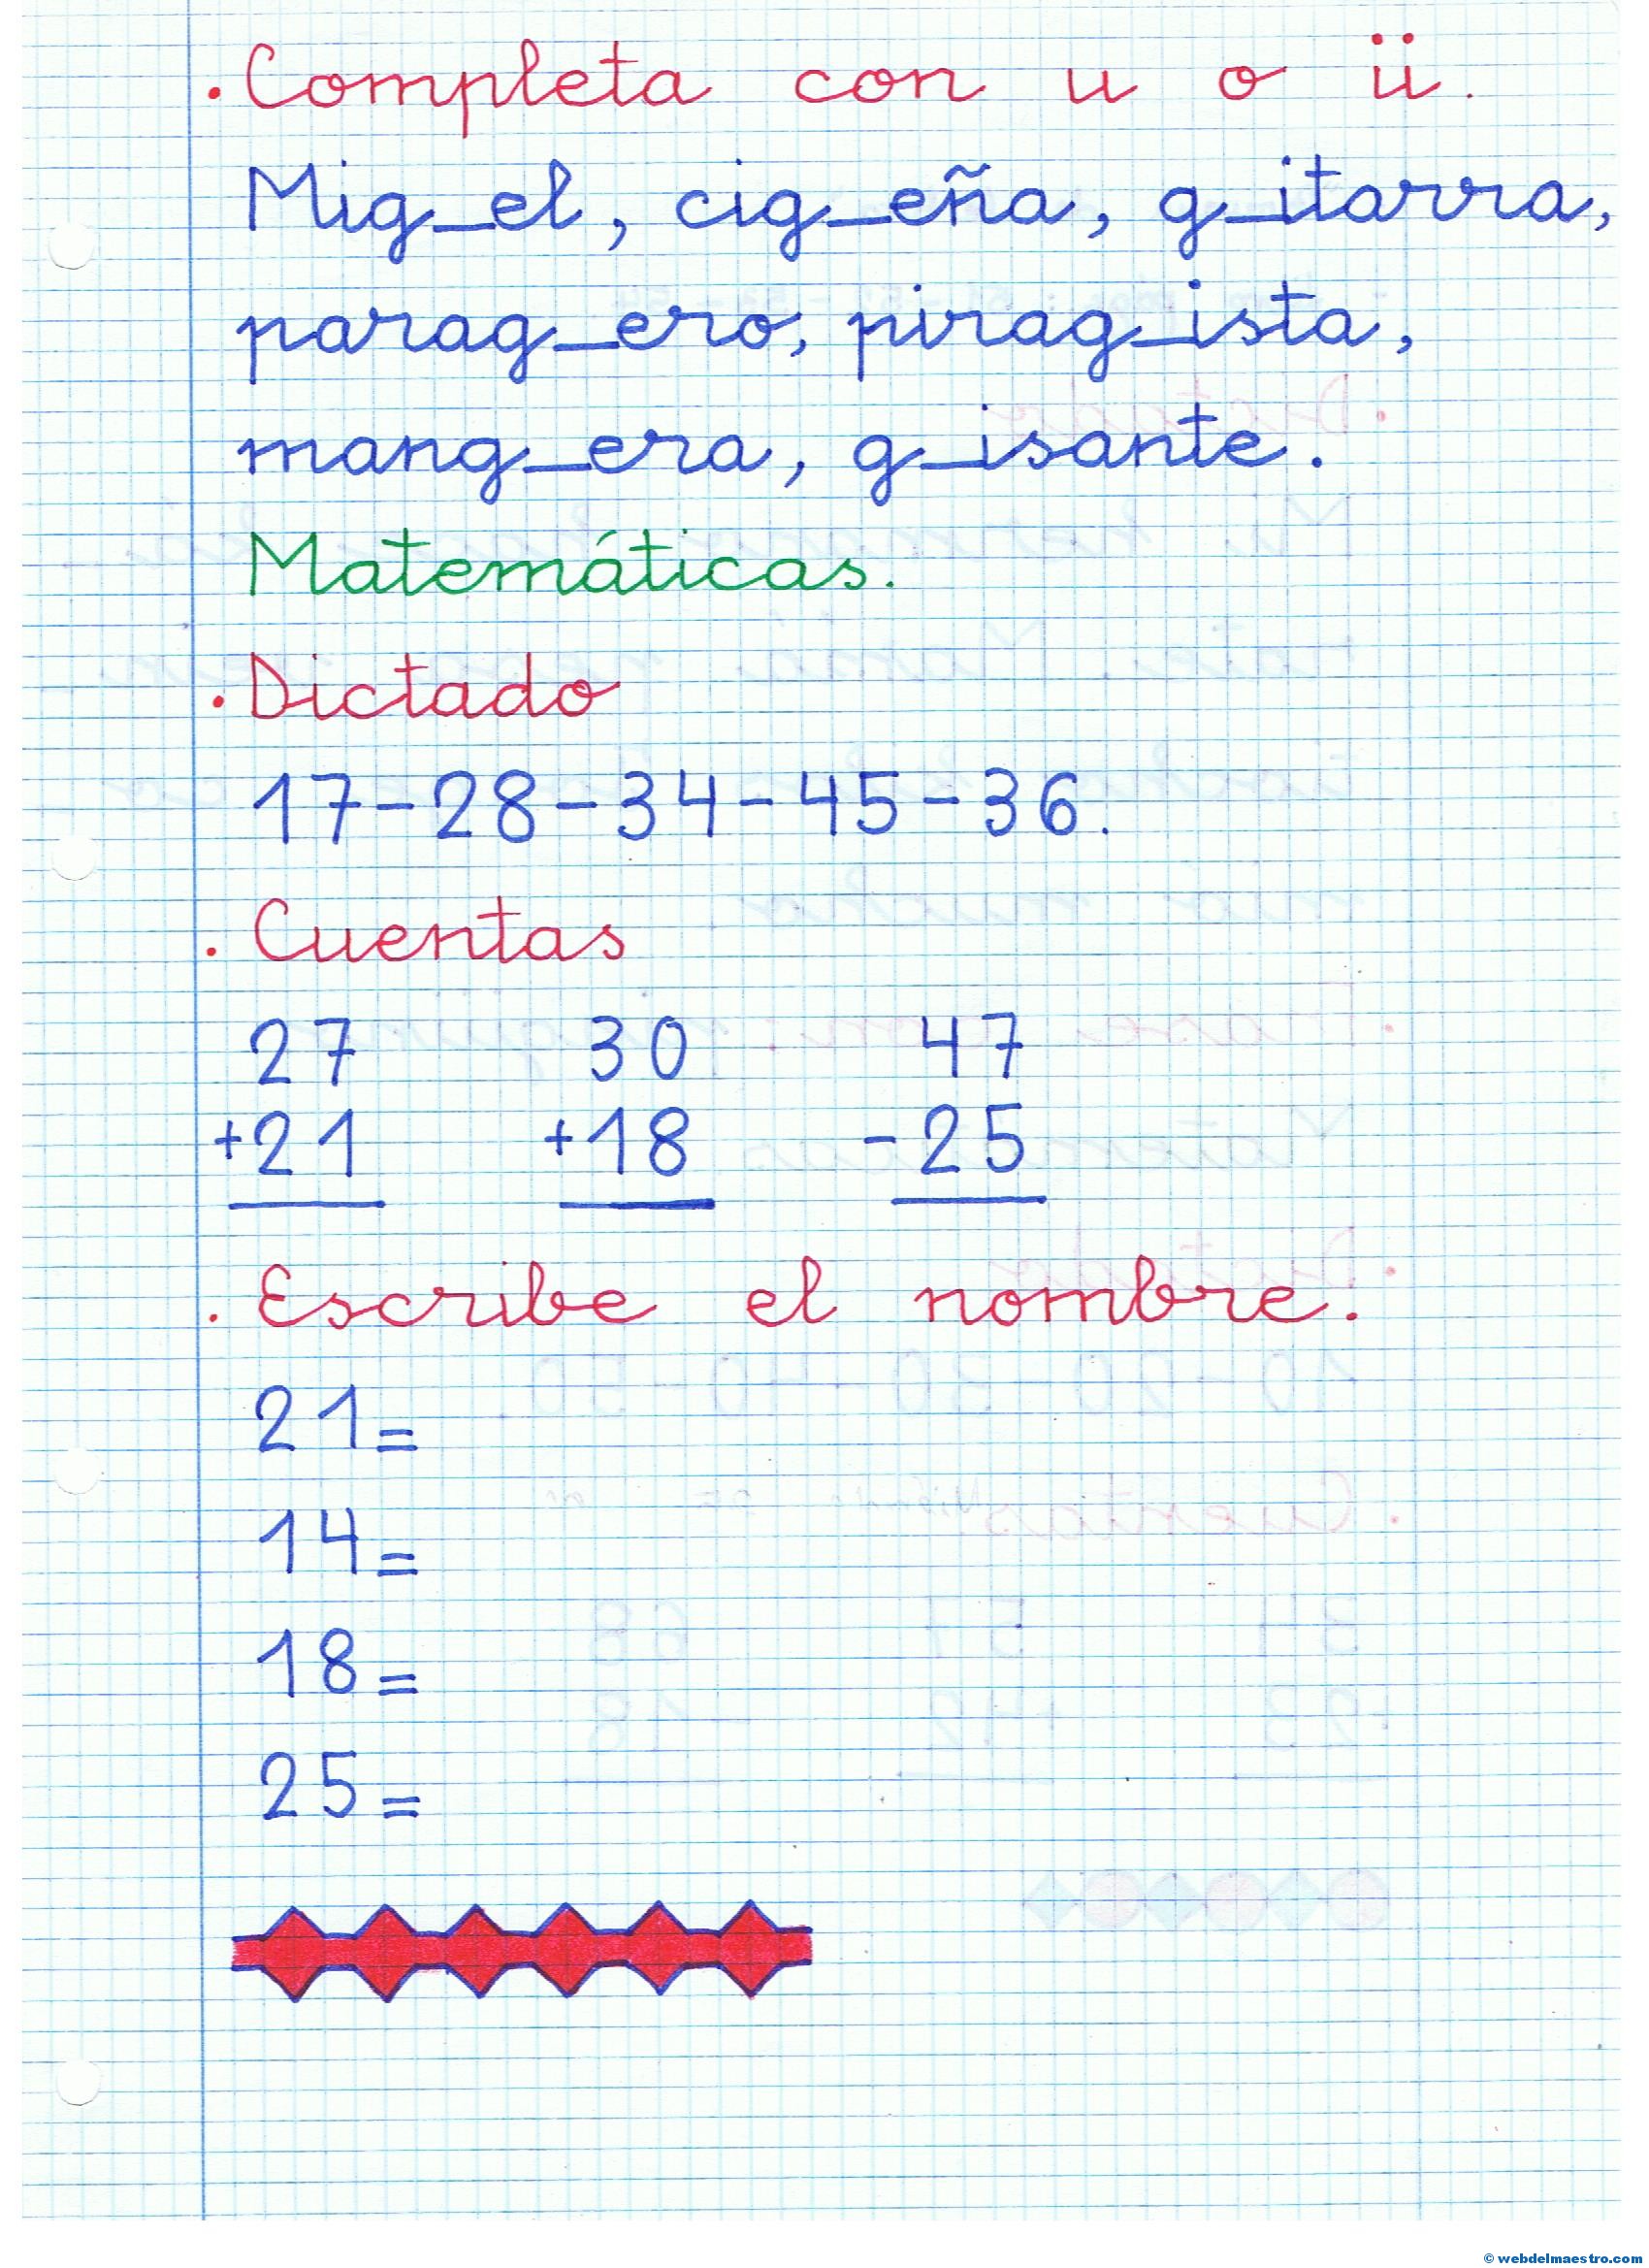 . Completa con u o ü.
Mig_el, cig_eña, g_itarra,
parag_ero, pirag_ista,
mang_era, g_isante.
Matemáticas.
. Dictado
17-28-34-45-36.
. Cuentas
27 30 47
+21 +18 -25
. Escribe el nombre.
21=
14=
18=
25=
© webdelmaestro.com